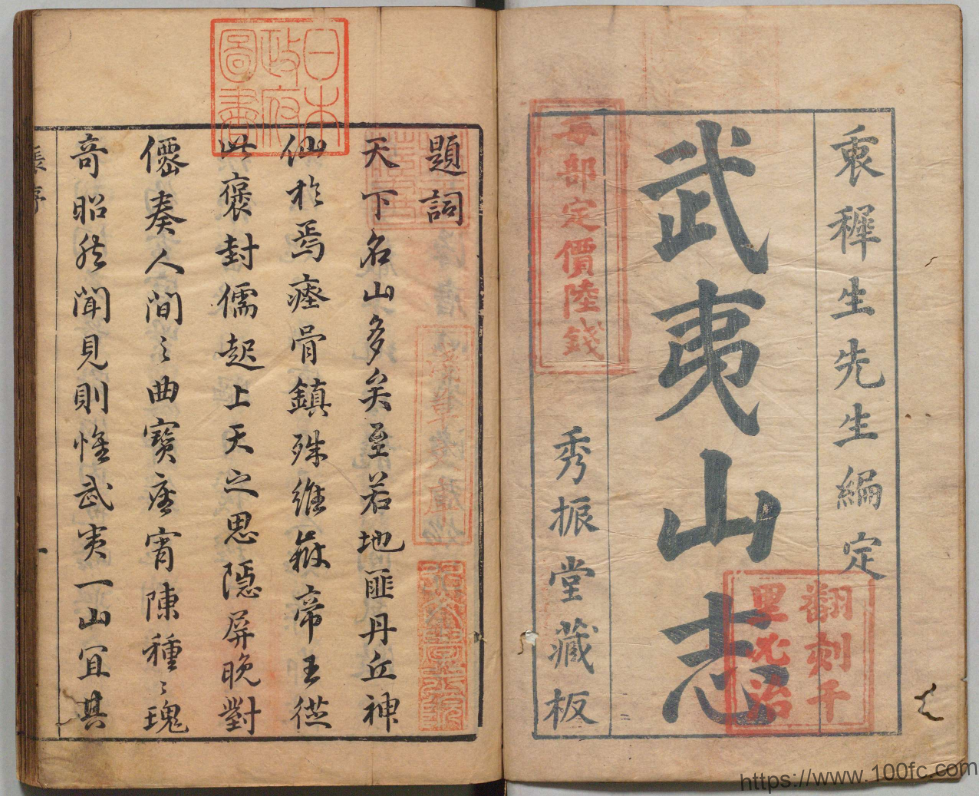 衷穉生先生編定
武夷山志
秀振堂藏板
每部定價陸錢
翻刻千
里必治
日本
政府
圖書
題詞
天下名山多矣至若地匪丹丘神
仙於焉瘞骨鎮殊維嶽帝王從
此褒封儒起上天之思隱屏晚對
僊奏人間之曲寶座宵陳種種瑰
奇昭然聞見則惟武夷一山宜其
https://www.100fc.com